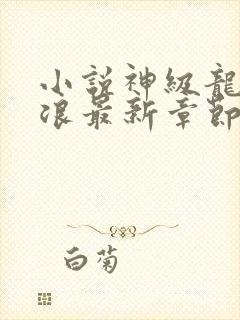 小説神級龍
浪最新章節
白菊